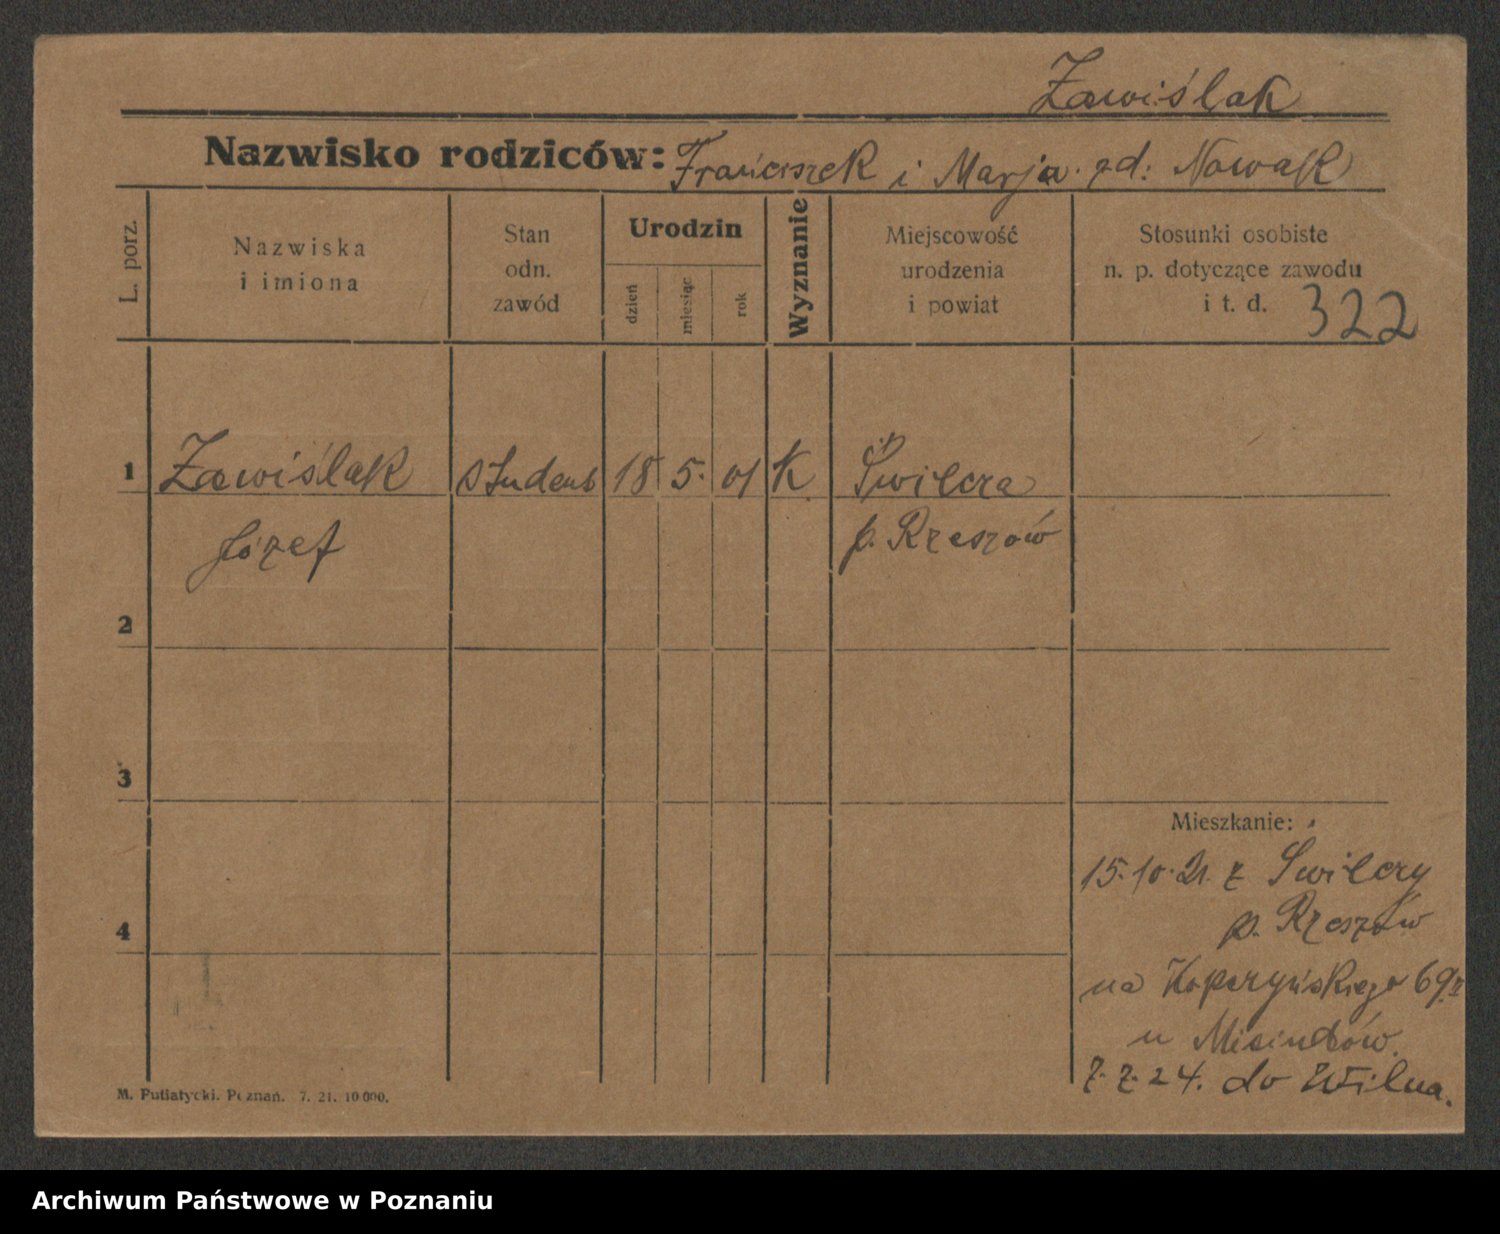 Zawiślak
Nazwisko rodziców: Franciszek i Marja zd: Nowak
L. porz.
Nazwiska
i imiona
Stan
odn.
zawód
Urodzin
dzień
miesiąc
rok
Wyznanie
Miejscowość
urodzenia
i powiat
Stosunki osobiste
n. p. dotyczące zawodu
i t. d. 322
1 Zawiślak student 18 5. 01 K Świlcza
Józef p. Rzeszów
2
3
Mieszkanie:
15.10.21. z Świlczy
p. Rzeszów
4
na Kopczyńskiego 69
u
24. do Wilna.
M. Putiatycki. Poznań. 7. 21. 10 000.
Archiwum Państwowe w Poznaniu